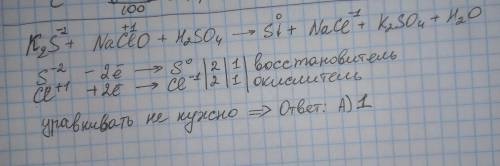 100
K₂S⁻² + NaCl⁺¹O + H₂SO₄ → S⁰↓ + NaCl⁻¹ + K₂SO₄ + H₂O
S⁻² - 2ē → S⁰ | 2 | 1 | восстановитель
Cl⁺¹ + 2ē → Cl⁻¹ | 2 | 1 | окислитель
уравнивать не нужно ⇒ Ответ: А) 1